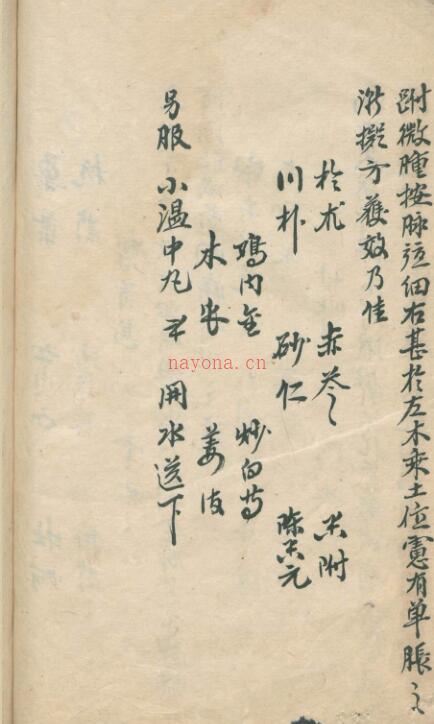 跗微腫按脉弦細右甚於左木乘土位慮有单脹之
渐擬方獲效乃佳
於朮 赤苓 香附
川朴 砂仁 陈香元
鸡内金 炒白芍
木瓜 姜皮
另服 小温中丸 開水送下
nayona.cn